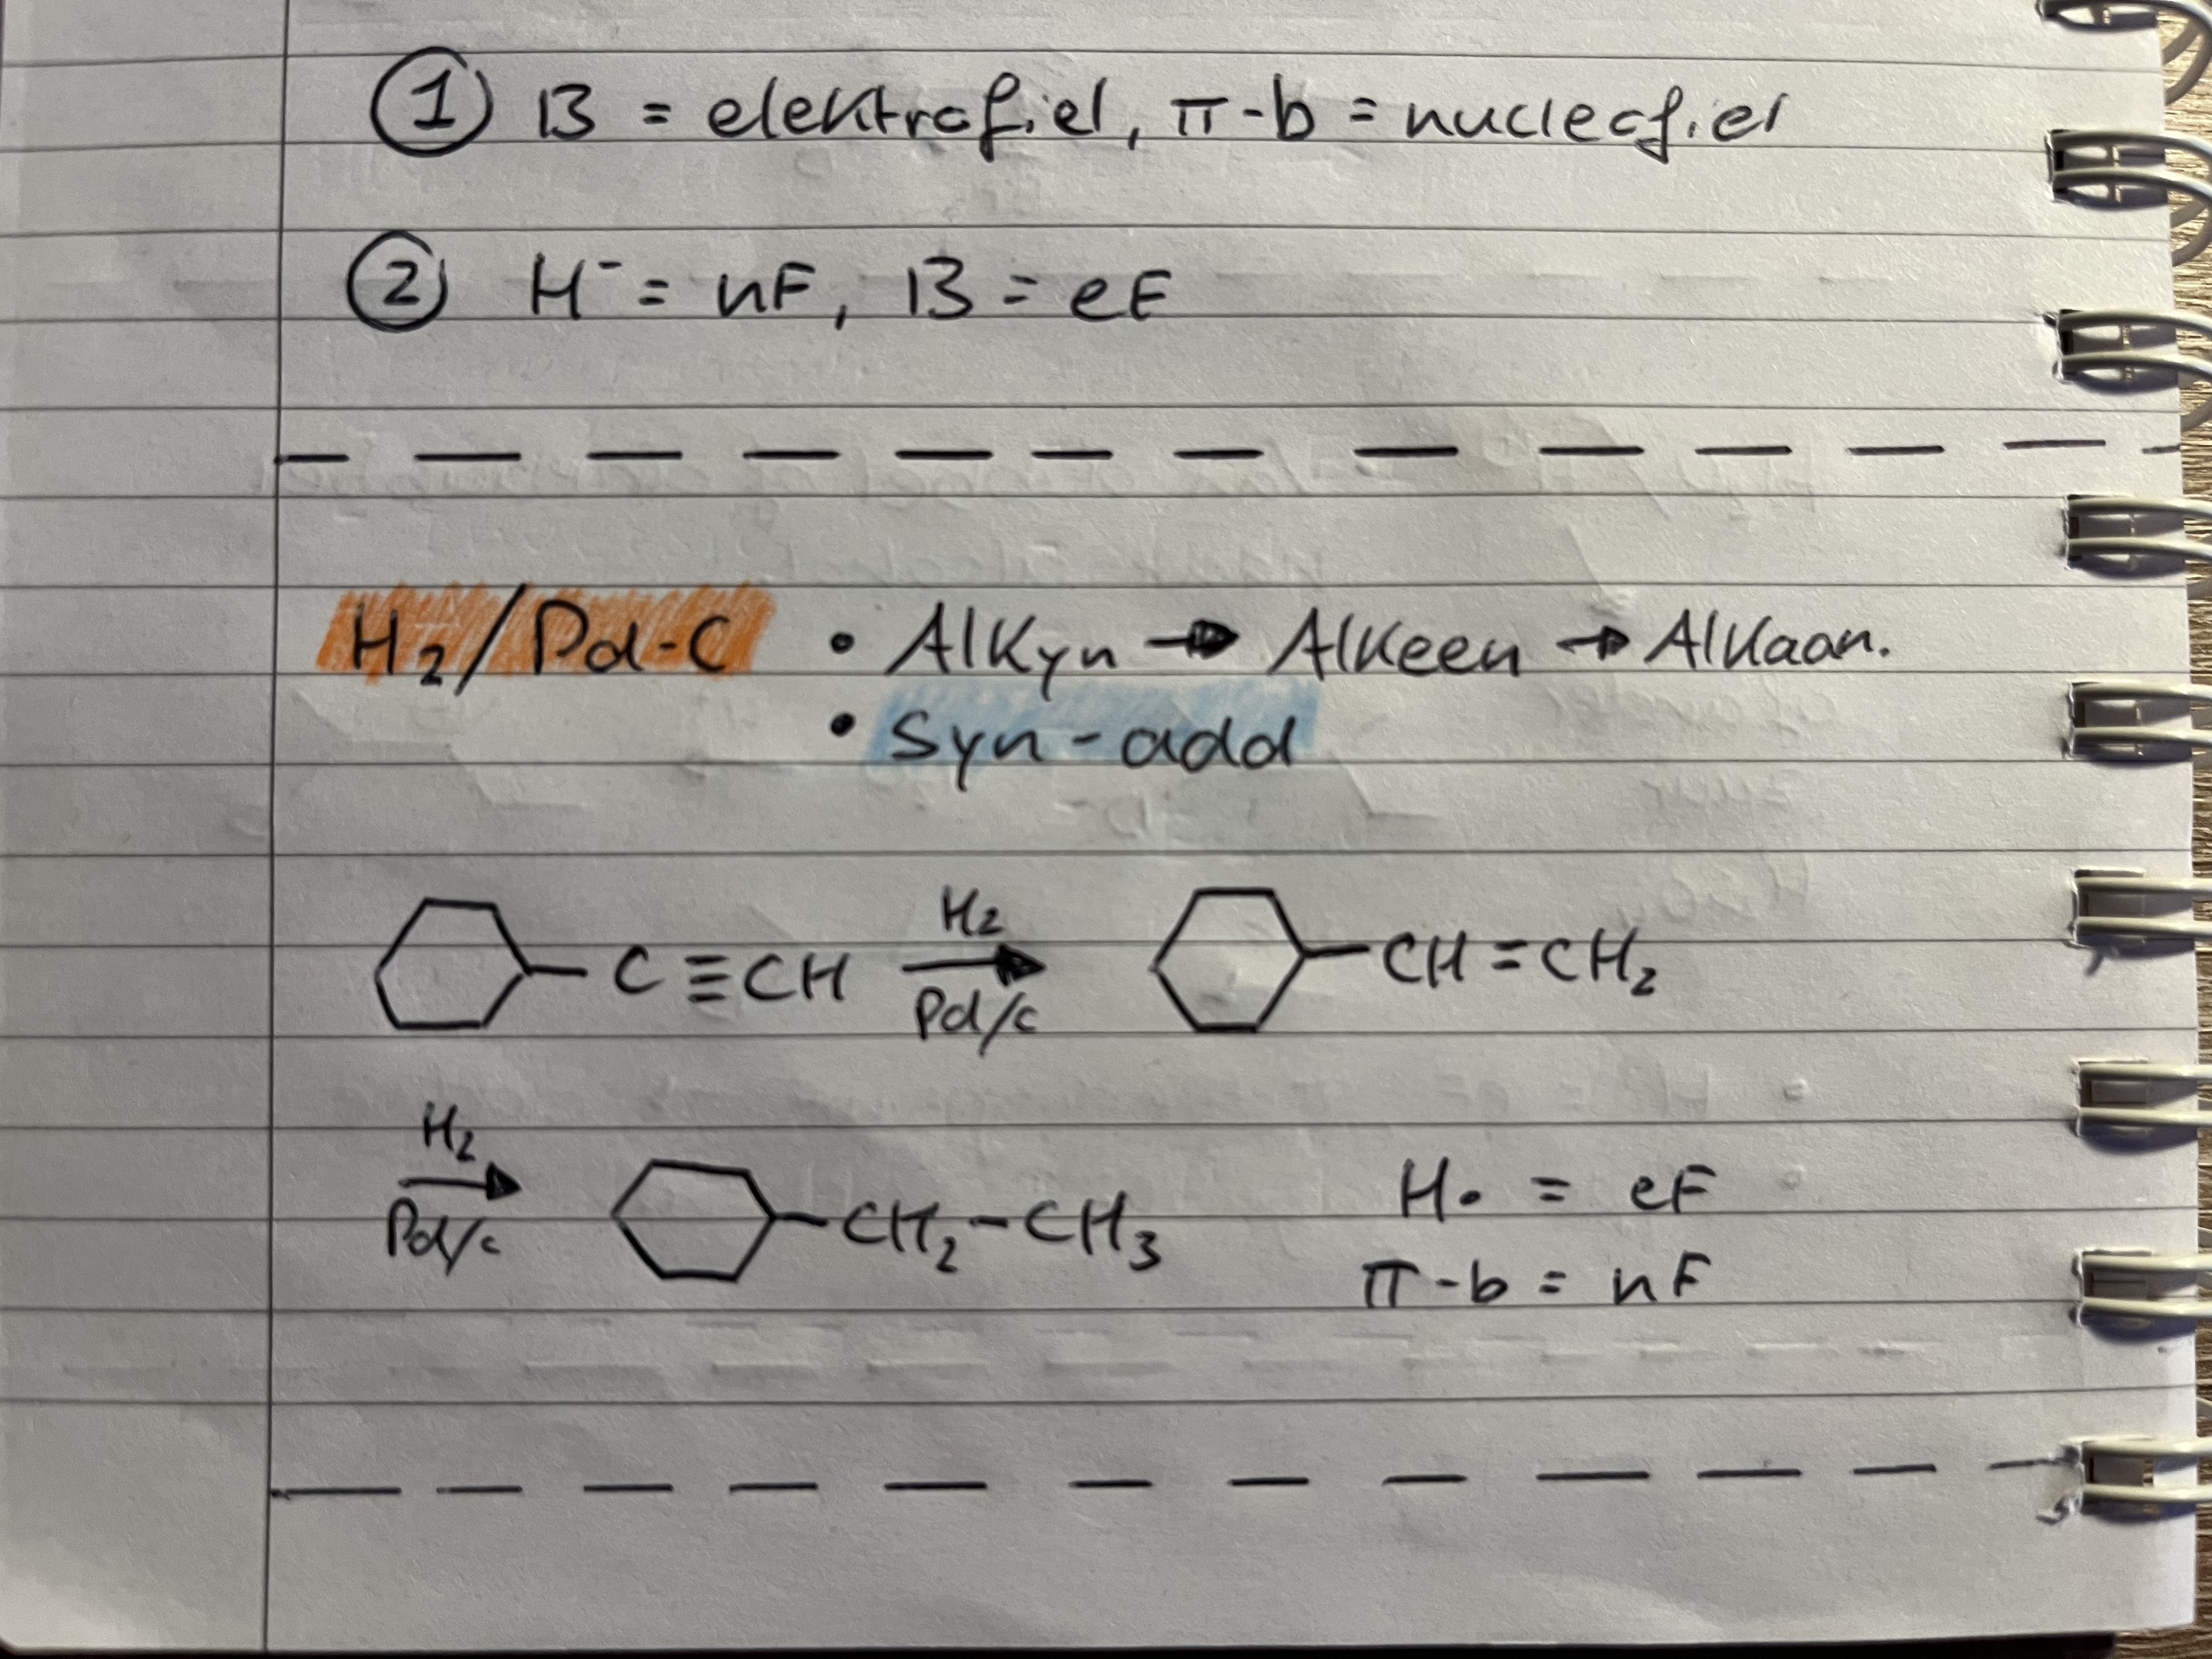 ① B = elektrofiel, π-b = nucleofiel
② H⁻ = nF, B = eF
H₂/Pd-C • Alkyn → Alkeen → Alkaan.
• Syn-add
C≡CH H₂ → Pd/c CH=CH₂
H₂ → Pd/c CH₂-CH₃ H• = eF
π-b = nF